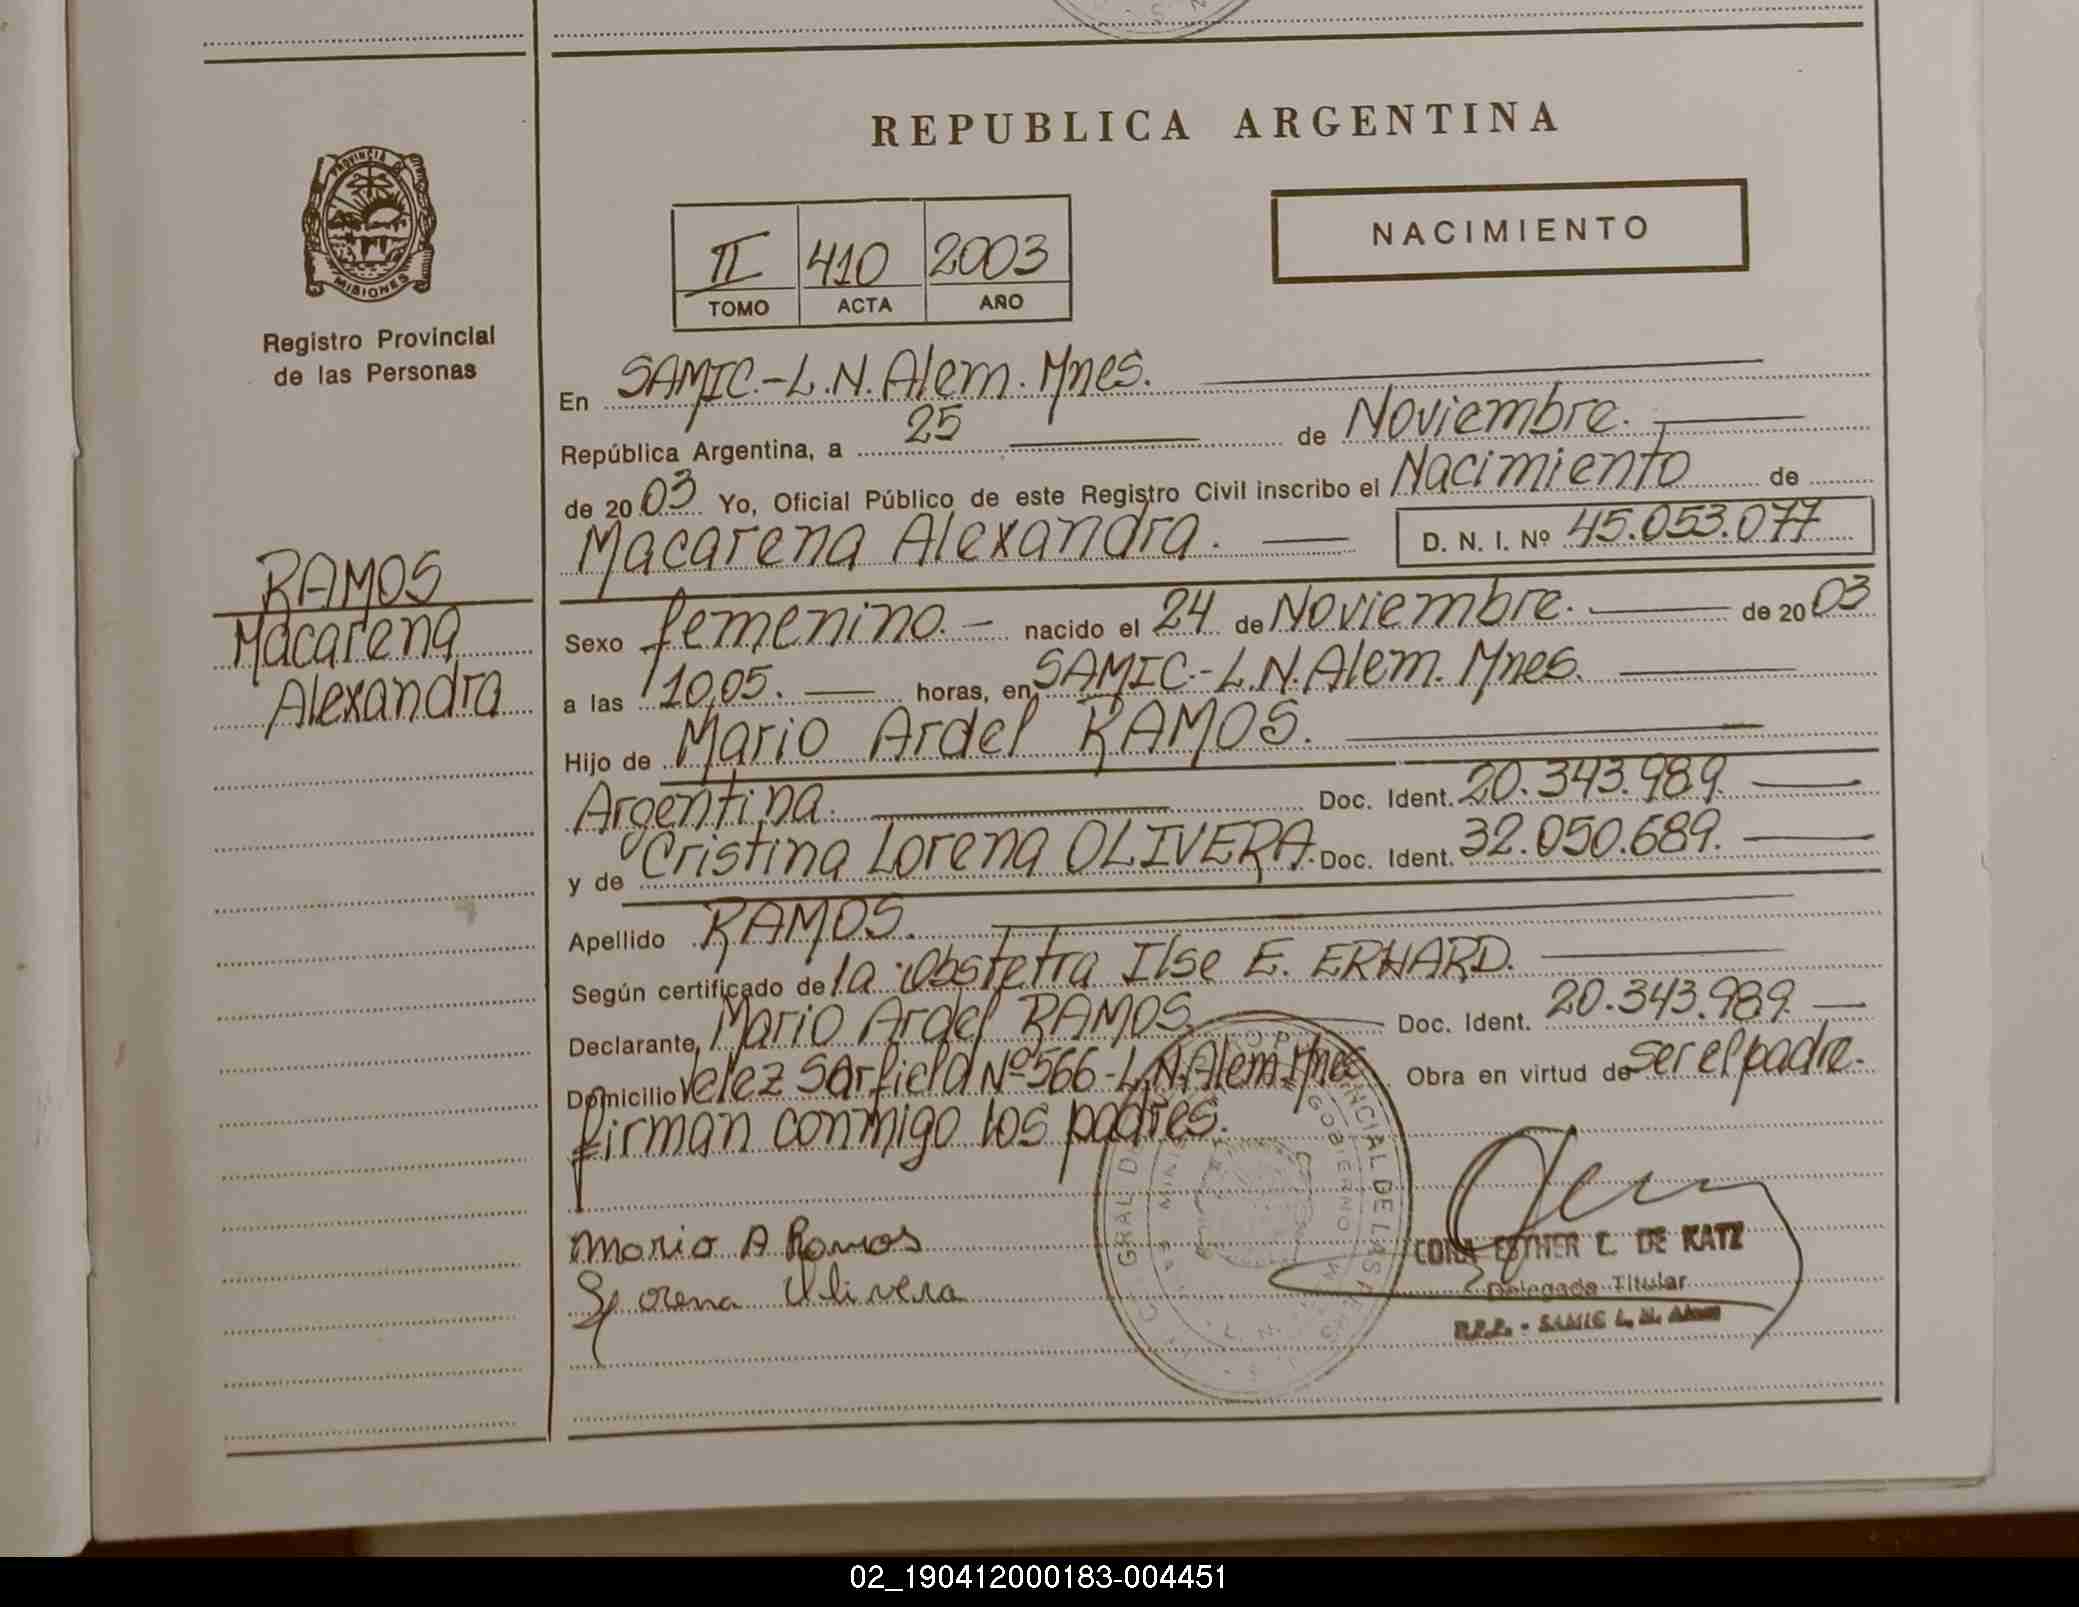 REPUBLICA ARGENTINA
PROVINCIA DE
MISIONES
Registro Provincial
de las Personas
II 410 2003
TOMO ACTA AÑO
NACIMIENTO
En SAMIC.-L.N.Alem. Mnes.
República Argentina, a 25 de Noviembre.
de 2003 Yo, Oficial Público de este Registro Civil inscribo el Nacimiento de
Macarena Alexandra. D. N. I. Nº 45.053.077
RAMOS
Macarena
Alexandra
Sexo femenino.- nacido el 24 de Noviembre. de 2003
a las 10,05. horas, en SAMIC.-L.N.Alem. Mnes.
Hijo de Mario Ardel RAMOS.
Argentina. Doc. Ident. 20.343.989.
y de Cristina Lorena OLIVERA. Doc. Ident. 32.050.689.
Apellido RAMOS.
Según certificado de la Obstetra Ilse E. ERHARD.
Declarante, Mario Ardel RAMOS. Doc. Ident. 20.343.989.
Domicilio Velez Sarfield Nº566-L.N.Alem.Mnes Obra en virtud de ser el padre.
firman conmigo los padres.
Mario A Ramos
Lorena Olivera
CORA ESTHER C. DE KATZ
Delegada Titular
R.P.P. - SAMIC L. N. Alem
02_190412000183-004451